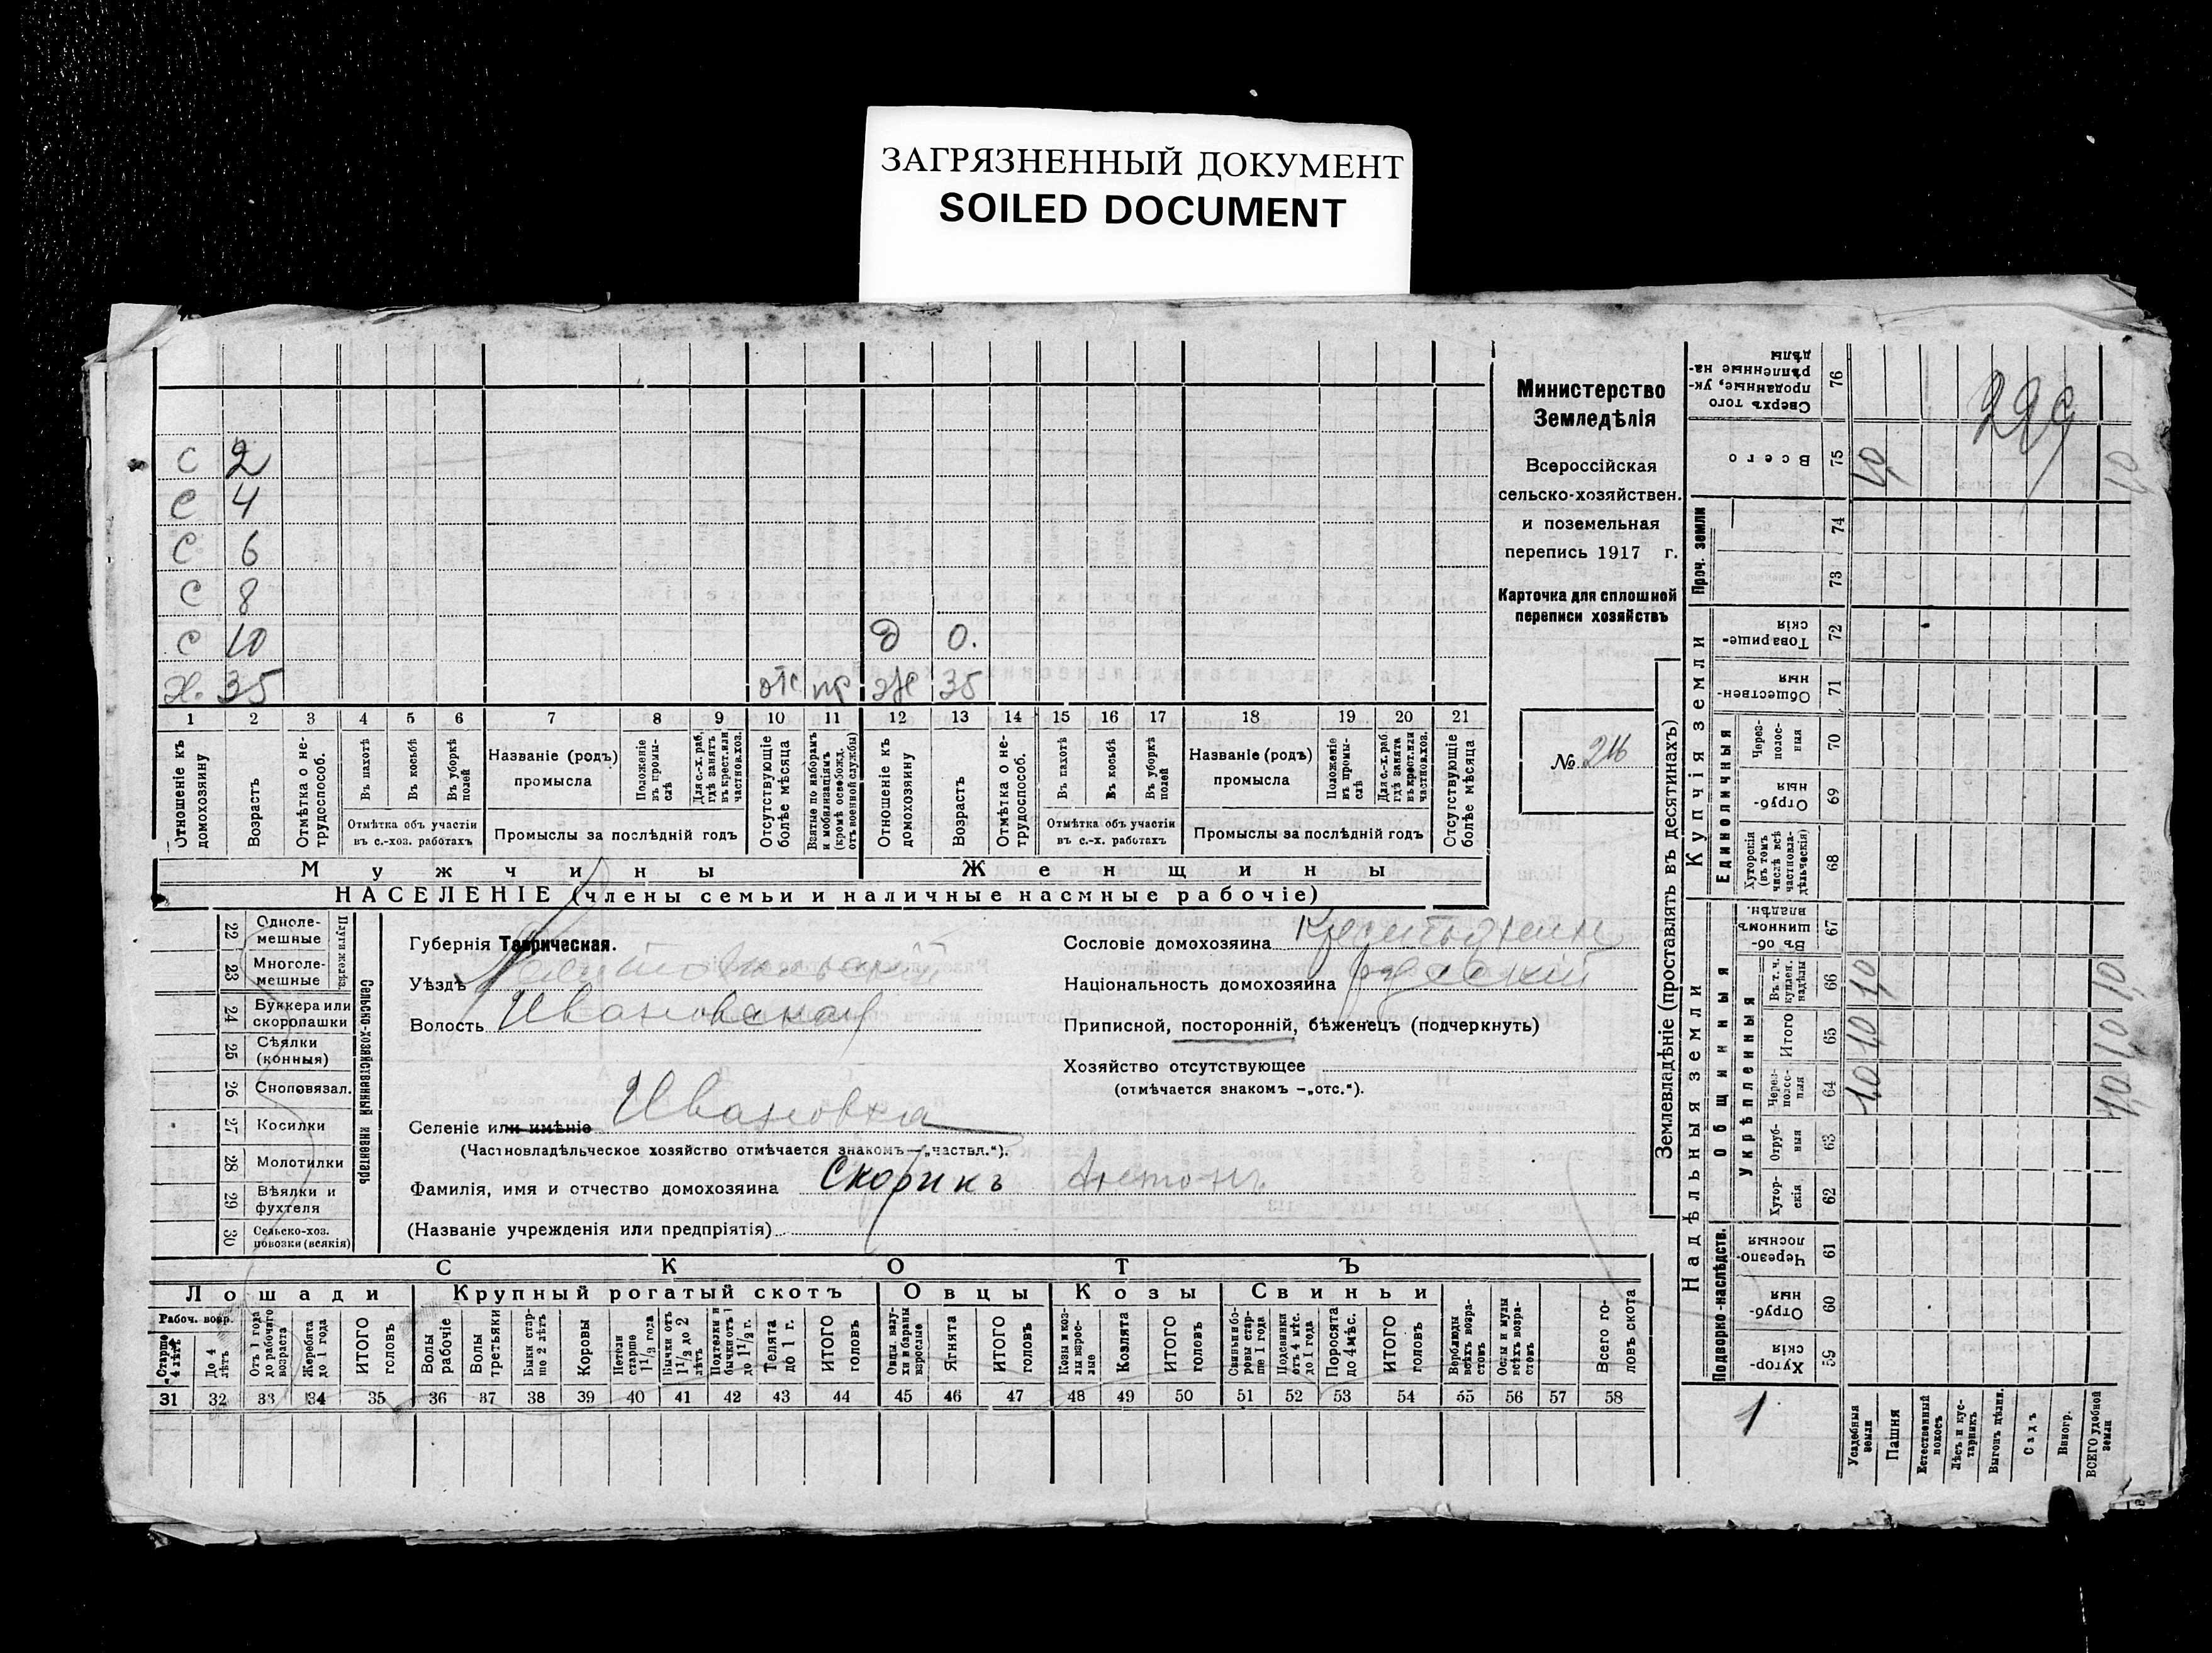 ЗАГРЯЗНЕННЫЙ ДОКУМЕНТ
SOILED DOCUMENT
С 2
С 4
С 6
С 8
С 10 Д 0.
Х. 35 отс пр Ж 35
1 2 3 4 5 6 7 8 9 10 11 12 13 14 15 16 17 18 19 20 21
Отношеніе къ домохозяину
Возрастъ
Отмѣтка о нетрудоспособ.
Въ пахотѣ
Въ косьбѣ
Въ уборкѣ полей
Отмѣтка объ участіи
въ с.-хоз. работахъ
Названіе (родъ)
промысла
Положеніе въ промыслѣ
Для с.-х. раб. гдѣ занятъ въ крест. или частнов. хоз.
Промыслы за послѣдній годъ
Отсутствующіе болѣе мѣсяца
Взятые по наборамъ и мобилизаціямъ (кромѣ освобожд. отъ военной службы)
Отношеніе къ домохозяину
Возрастъ
Отмѣтка о нетрудоспособ.
Въ пахотѣ
Въ косьбѣ
Въ уборкѣ полей
Отмѣтка объ участіи
въ с.-х. работахъ
Названіе (родъ)
промысла
Положеніе въ промыслѣ
Для с.-х. раб. гдѣ занята въ крест. или частнов. хоз.
Промыслы за послѣдній годъ
Отсутствующіе болѣе мѣсяца
Мужчины Женщины
НАСЕЛЕНІЕ (члены семьи и наличные насмные рабочіе)
Министерство
Земледѣлія
Всероссійская
сельско-хозяйствен.
и поземельная
перепись 1917 г.
Карточка для сплошной
переписи хозяйствъ
№ 216
Плуги желѣз.
22 Одноле-
мешные
23 Многоле-
мешные
24 Буккера или
скоропашки
25 Сѣялки
(конныя)
26 Сноповязал.
27 Косилки
28 Молотилки
29 Вѣялки и
фухтеля
30 Сельско-хоз.
повозки (всякія)
Сельско-хозяйственный инвентарь
Губернія Таврическая.
Уѣздъ Мелитопольскій
Волость Ивановская
Селеніе или имѣніе Ивановка
(Частновладѣльческое хозяйство отмѣчается знакомъ—„частвл.“).
Фамилія, имя и отчество домохозяина Скорикъ Антонъ
(Названіе учрежденія или предпріятія)
Сословіе домохозяина Крестьянин
Національность домохозяина русскій
Приписной, посторонній, бѣженецъ (подчеркнуть)
Хозяйство отсутствующее
(отмѣчается знакомъ —„отс.“).
СКОТЪ
Лошади Крупный рогатый скотъ Овцы Козы Свиньи
Рабоч. возр.
Старше 4 лѣтъ
До 4 лѣтъ
Отъ 1 года до рабочаго возраста
Жеребята до 1 года
ИТОГО головъ
Волы рабочіе
Волы третьяки
Быки старше 2 лѣтъ
Коровы
Нетели старше 1½ года
Бычки отъ 1½ до 2 лѣтъ
Подтелки и бычки отъ 1 до 1½ г.
Телята до 1 г.
ИТОГО головъ
Овцы, валухи и бараны взрослые
Ягнята
ИТОГО головъ
Козы и козлы взрослые
Козлята
ИТОГО головъ
Свиньи и боровы старше 1 года
Подсвинки отъ 4 мѣс. до 1 года
Поросята до 4 мѣс.
ИТОГО головъ
Верблюды всѣхъ возрастовъ
Ослы и мулы всѣхъ возрастовъ
Всего головъ скота
31 32 33 34 35 36 37 38 39 40 41 42 43 44 45 46 47 48 49 50 51 52 53 54 55 56 57 58
Землевладѣніе (проставлять въ десятинахъ)
Надѣльныя земли Купчія земли Проч. земли
Подворно-наслѣдств. Общинныя
Укрѣпленныя
Единоличныя
Хуторскія 59
Отрубныя 60
Черезполосныя 61
Хуторскія 62
Отрубныя 63
Черезполосныя 64 1,0 1,0
Итого 65 1,0 1,0
Въ т. ч. куплен. надѣлы 66 1,0 1,0
Въ общинномъ владѣн. 67
Хуторскія (въ томъ числѣ всѣ частновладѣльческія) 68
Отрубныя 69
Черезполосныя 70
Общественныя 71
Товарищескія 72
73
74
Всего 75 1,0 1,0
Сверхъ того проданные, укрѣпленные надѣлы 76
229
1
Усадебныя земли
Пашня
Естественный покосъ
Лѣсъ и кустарникъ
Выгонъ цѣлин.
Садъ
Виногр.
ВСЕГО удобной земли